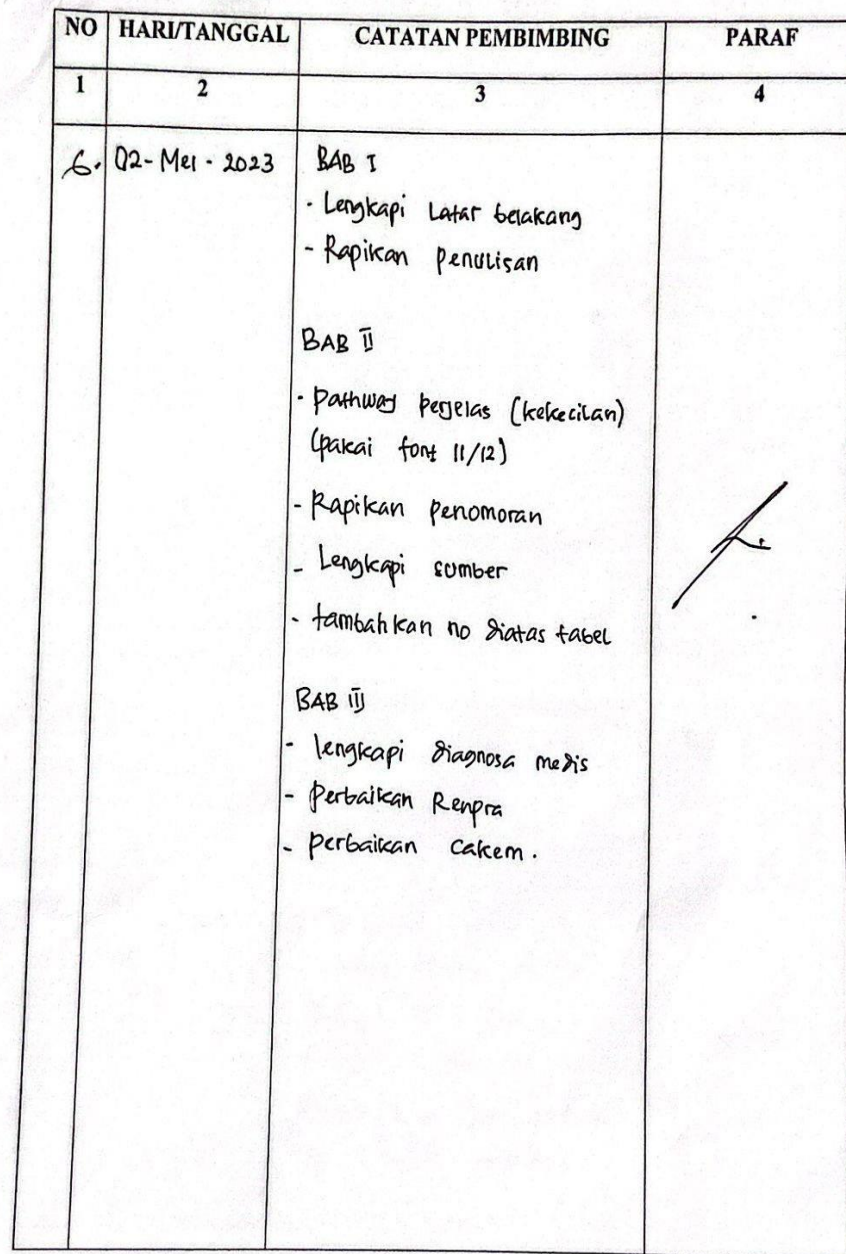 NO HARI/TANGGAL CATATAN PEMBIMBING PARAF
1 2 3 4
6. 02-Mei-2023 BAB I
- Lengkapi Latar belakang
- Rapikan penulisan
BAB II
- pathway perjelas (kekecilan)
(pakai font 11/12)
- Rapikan penomoran
- Lengkapi sumber
- tambahkan no diatas tabel
BAB III
- lengkapi diagnosa medis
- perbaikan Renpra
- perbaikan cakem.